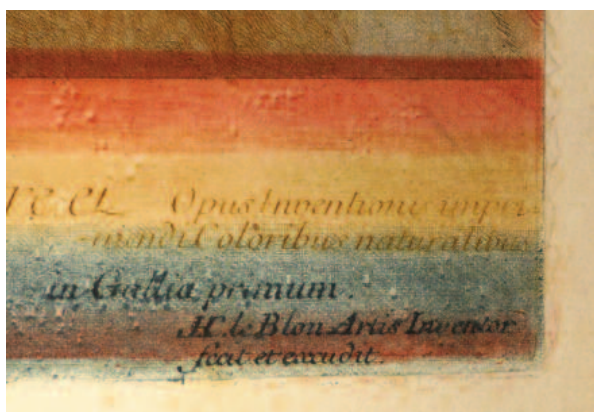 Opus Inventionis impri-
mendi Coloribus naturalibus
in Gallia primum.
J C le Blon Artis Inventor
fecit et excudit.